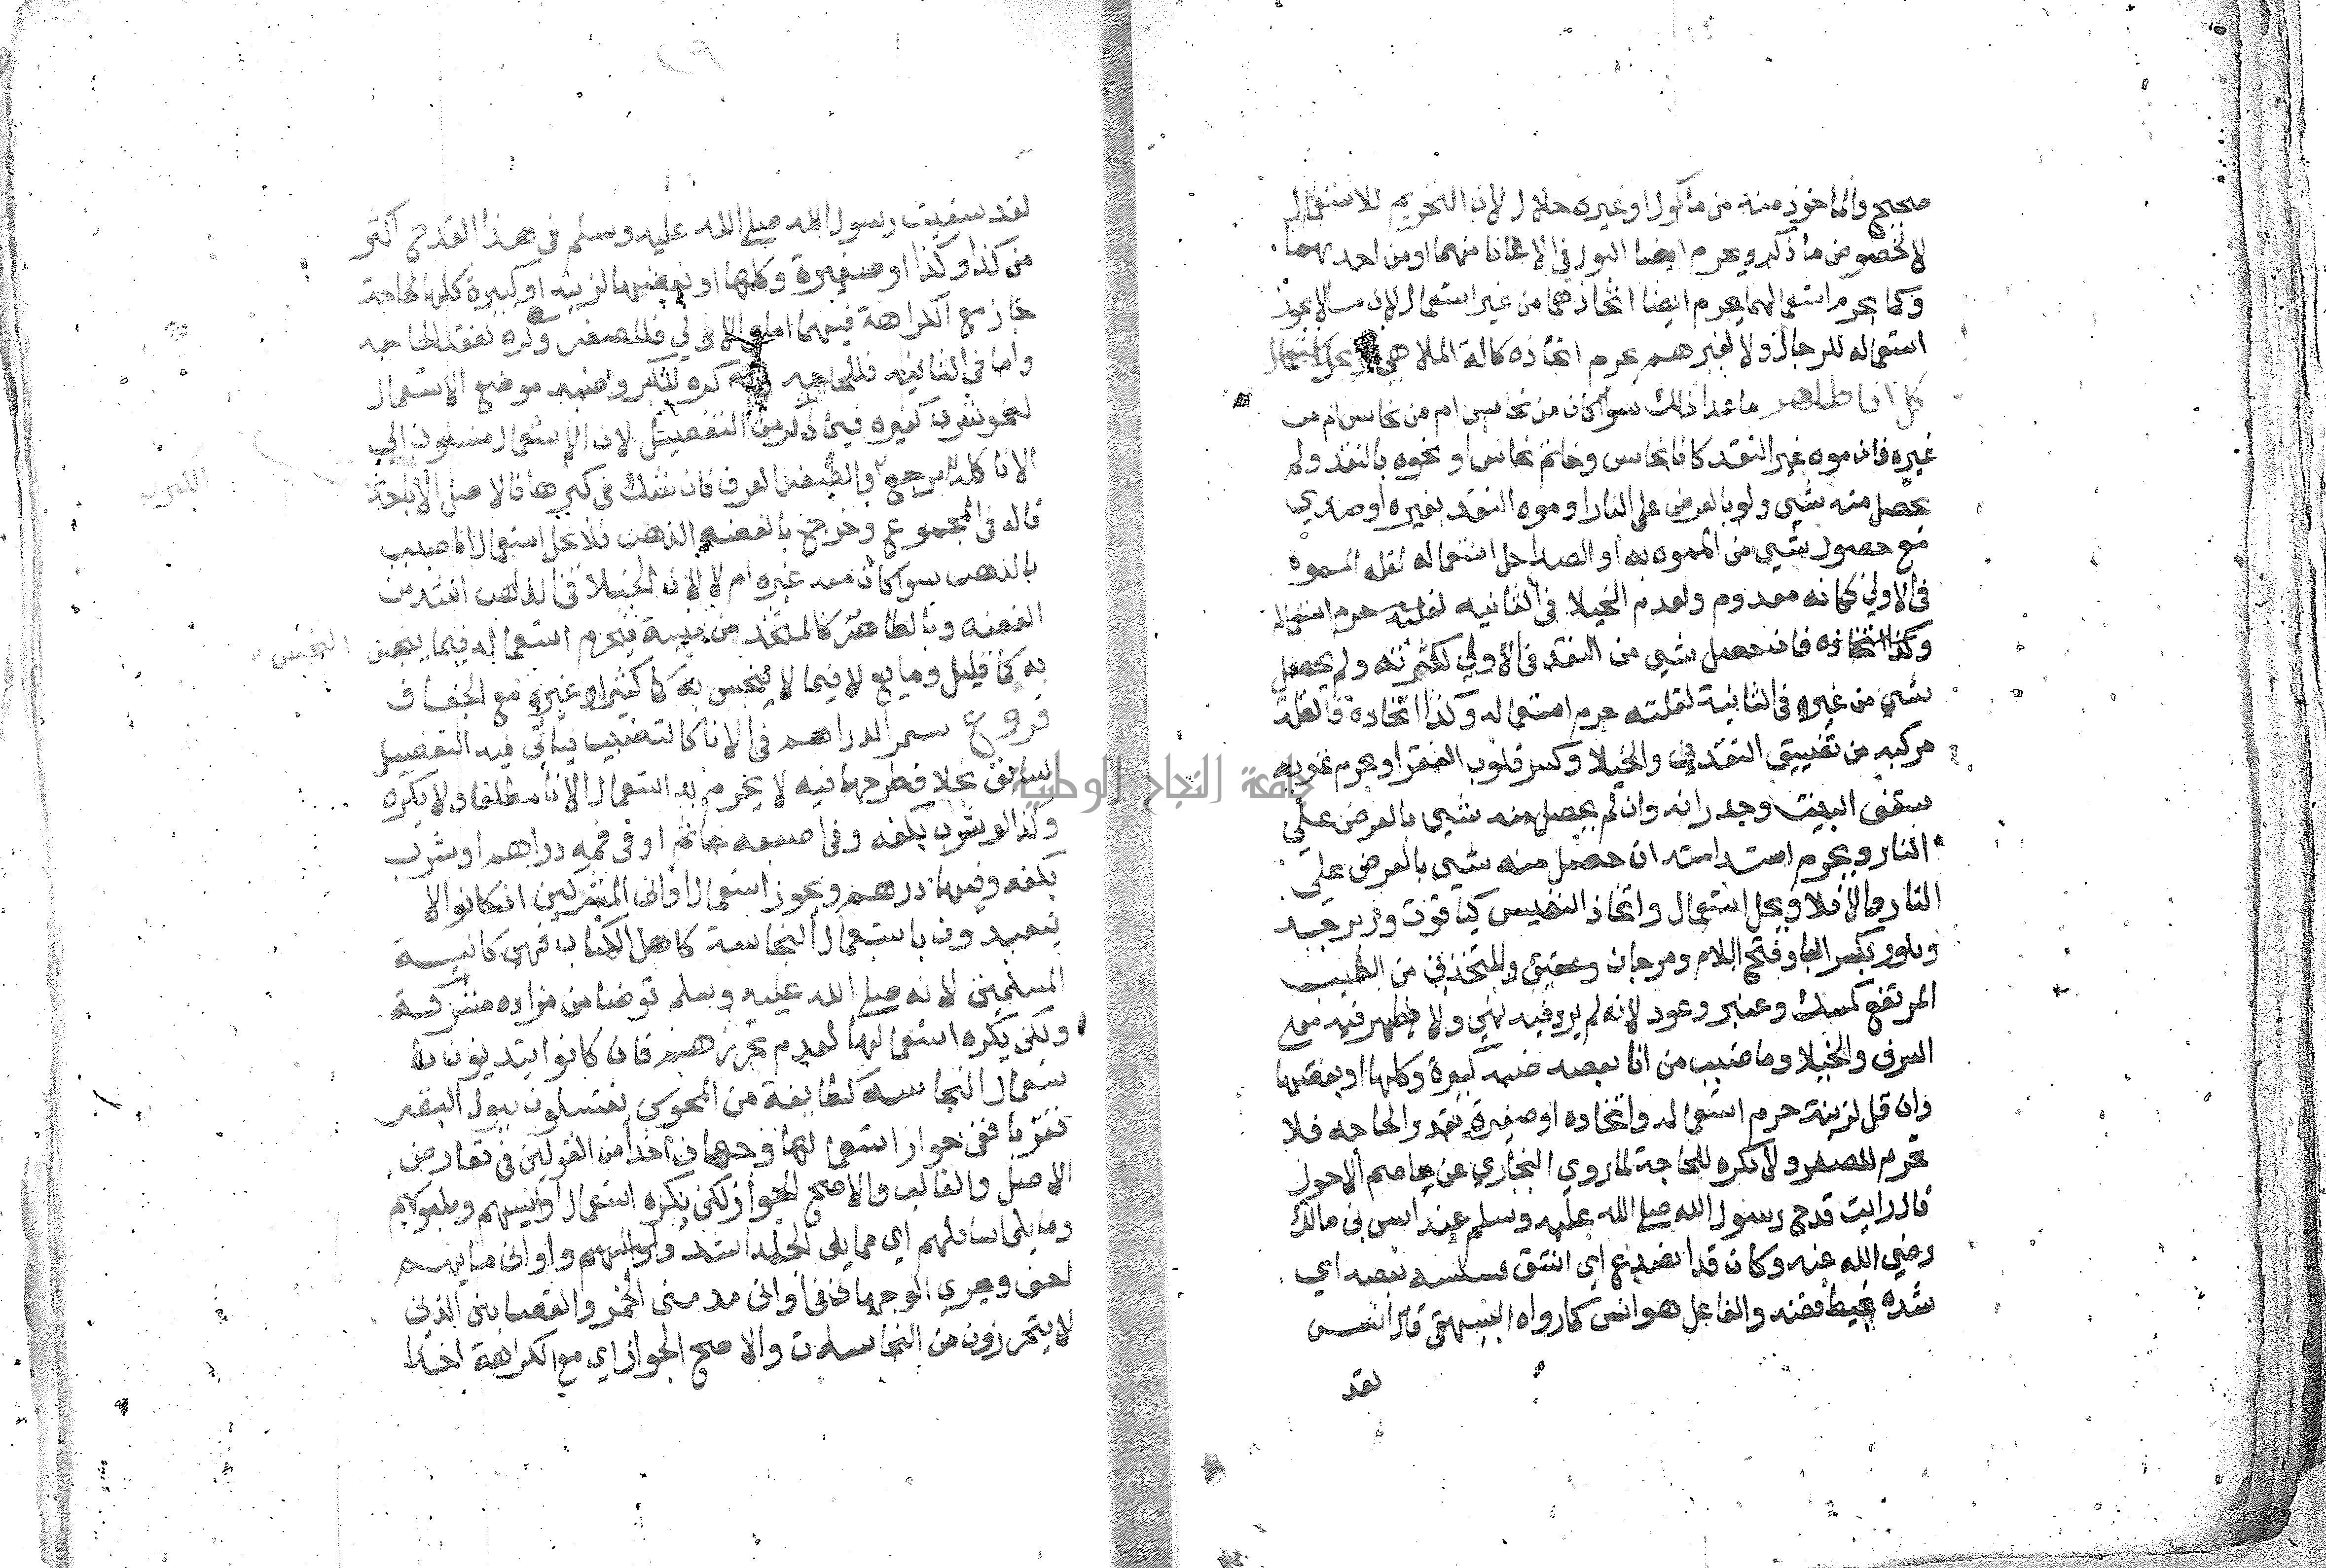 صحيح والماخوذ منه من ماكول او غيره حلال لان التحريم للاستعمال
لا لخصوص ما ذكر ويحرم ايضا البول في الانا منهما او من احدهما
وكما يحرم استعمالهما يحرم ايضا اتخاذهما من غير استعمال لان ما لا يجوز
استعماله للرجال ولا لغيرهم يحرم اتخاذه كالة الملاهي ويحل استعمال
كل انا طاهر ما عدا ذلك سوا كان من نحاس ام من
غيره فان موه غير النقد كانا نحاس وخاتم نحاس او نحوه بالنقد ولم
يحصل منه شي ولو بالعرض على النار او موه النقد بغيره او صدي
مع حصول شي من المموه به او الصدا حل استعماله لقلة المموه
في الاولى فكانه معدوم ولعدم الخيلا في الثانيه حرم استعماله
وكذا اتخاذه فان حصل شي من النقد في الاولي لكثرته ولم يحصل
شي من غيره في الثانية لقلته حرم استعماله وكذا اتخاذه فالعلة
مركبه من تضييق النقدين والخيلا وكسر قلوب الفقرا ويحرم تمويه
سقف البيت وجدرانه وان لم يحصل منه شي بالعرض على
النار ويحرم استدامته ان حصل منه شي بالعرض على
النار والا فلا ويحل استعمال واتخاذ النفيس كياقوت وزبرجد
وبلور بكسر البا وفتح اللام ومرجان وعقيق والمتخذ من الطيب
المرتفع كمسك وعنبر وعود لانه لم يرد فيه نهي ولا يظهر فيه معنى
السرف والخيلا وما ضبب من انا بفضه ضبه كبيرة وكلها او بعضها
وان قل لزينة حرم استعماله واتخاذه او صغيرة بقدر الحاجه فلا
تحرم للصغر ولا تكره للحاجة لما روي البخاري عن عاصم الاحول
قال رايت قدح رسول الله صلى الله عليه وسلم عند انس بن مالك
رضي الله عنه وكان قد انصدع اي انشق فسلسله بفضه اي
شده بخيط فضه والفاعل هو انس كما رواه البيهقي قال انس
لقد
لقد سقيت رسول الله صلى الله عليه وسلم في هذا القدح اكثر
من كذا وكذا او صغيرة وكلها او بعضها لزينه او كبيرة كلها لحاجة
جاز مع الكراهة فيهما اما في الاولي فللصغر وكره لفقد الحاجه
واما في الثانيه فللحاجه وكره للكبر وضبه موضع الاستعمال
لنحو شرب كغيره فيما ذكر من التفصيل لان الاستعمال منسوب الي
الانا كله مرجع العرف فان شك في كبرها فالاصل الاباحة
الكبر
قاله في المجموع وخرج بالفضه الذهب فلا يحل استعمال انا ضبب
بالذهب سوا كان معه غيره ام لا لان الخيلا في الذهب اشد من
الفضه وبالطاهر كالمتخذ من ميتة فيحرم استعماله فيما ينجس
النجس
به كما قليل ومايع لا فيما لا ينجس به كما كثير او غيره مع الجفاف
فروع سمر الدراهم في الانا كالتضبيب فياتي فيه التفصيل
السابق بخلاف طرحها فيه لا يحرم به استعمال الانا مطلقا ولا يكره
وكذا لو شرب بكفه وفي اصبعه خاتم او في فمه دراهم او شرب
بكفه وفيها درهم ويجوز استعمال اواني المشركين ان كانوا لا
يتعبدون باستعمال النجاسة كاهل الكتاب فهي كانية
المسلمين لانه صلى الله عليه وسلم توضا من مزاده مشركة
ولكن يكره استعمالها لعدم تحرزهم فان كانوا يتدينون با
ستعمال النجاسه كطايفة من المجوس يغتسلون ببول البقر
تقربا ففي جواز استعمالها وجهان اخذا من القولين في تعارض
الاصل والغالب والاصح الجواز لكن يكره استعمال اوانيهم وملبوسهم
وما يلي اسافلهم اي مما يلي الجلد اشد واوانيهم واواني مايهم
اخف ويجري الوجهان في اواني مدمني الخمر والقصابين الذين
لا يتحرزون من النجاسات والاصح الجواز اي مع الكراهة اخذا
جامعة النجاح الوطنية